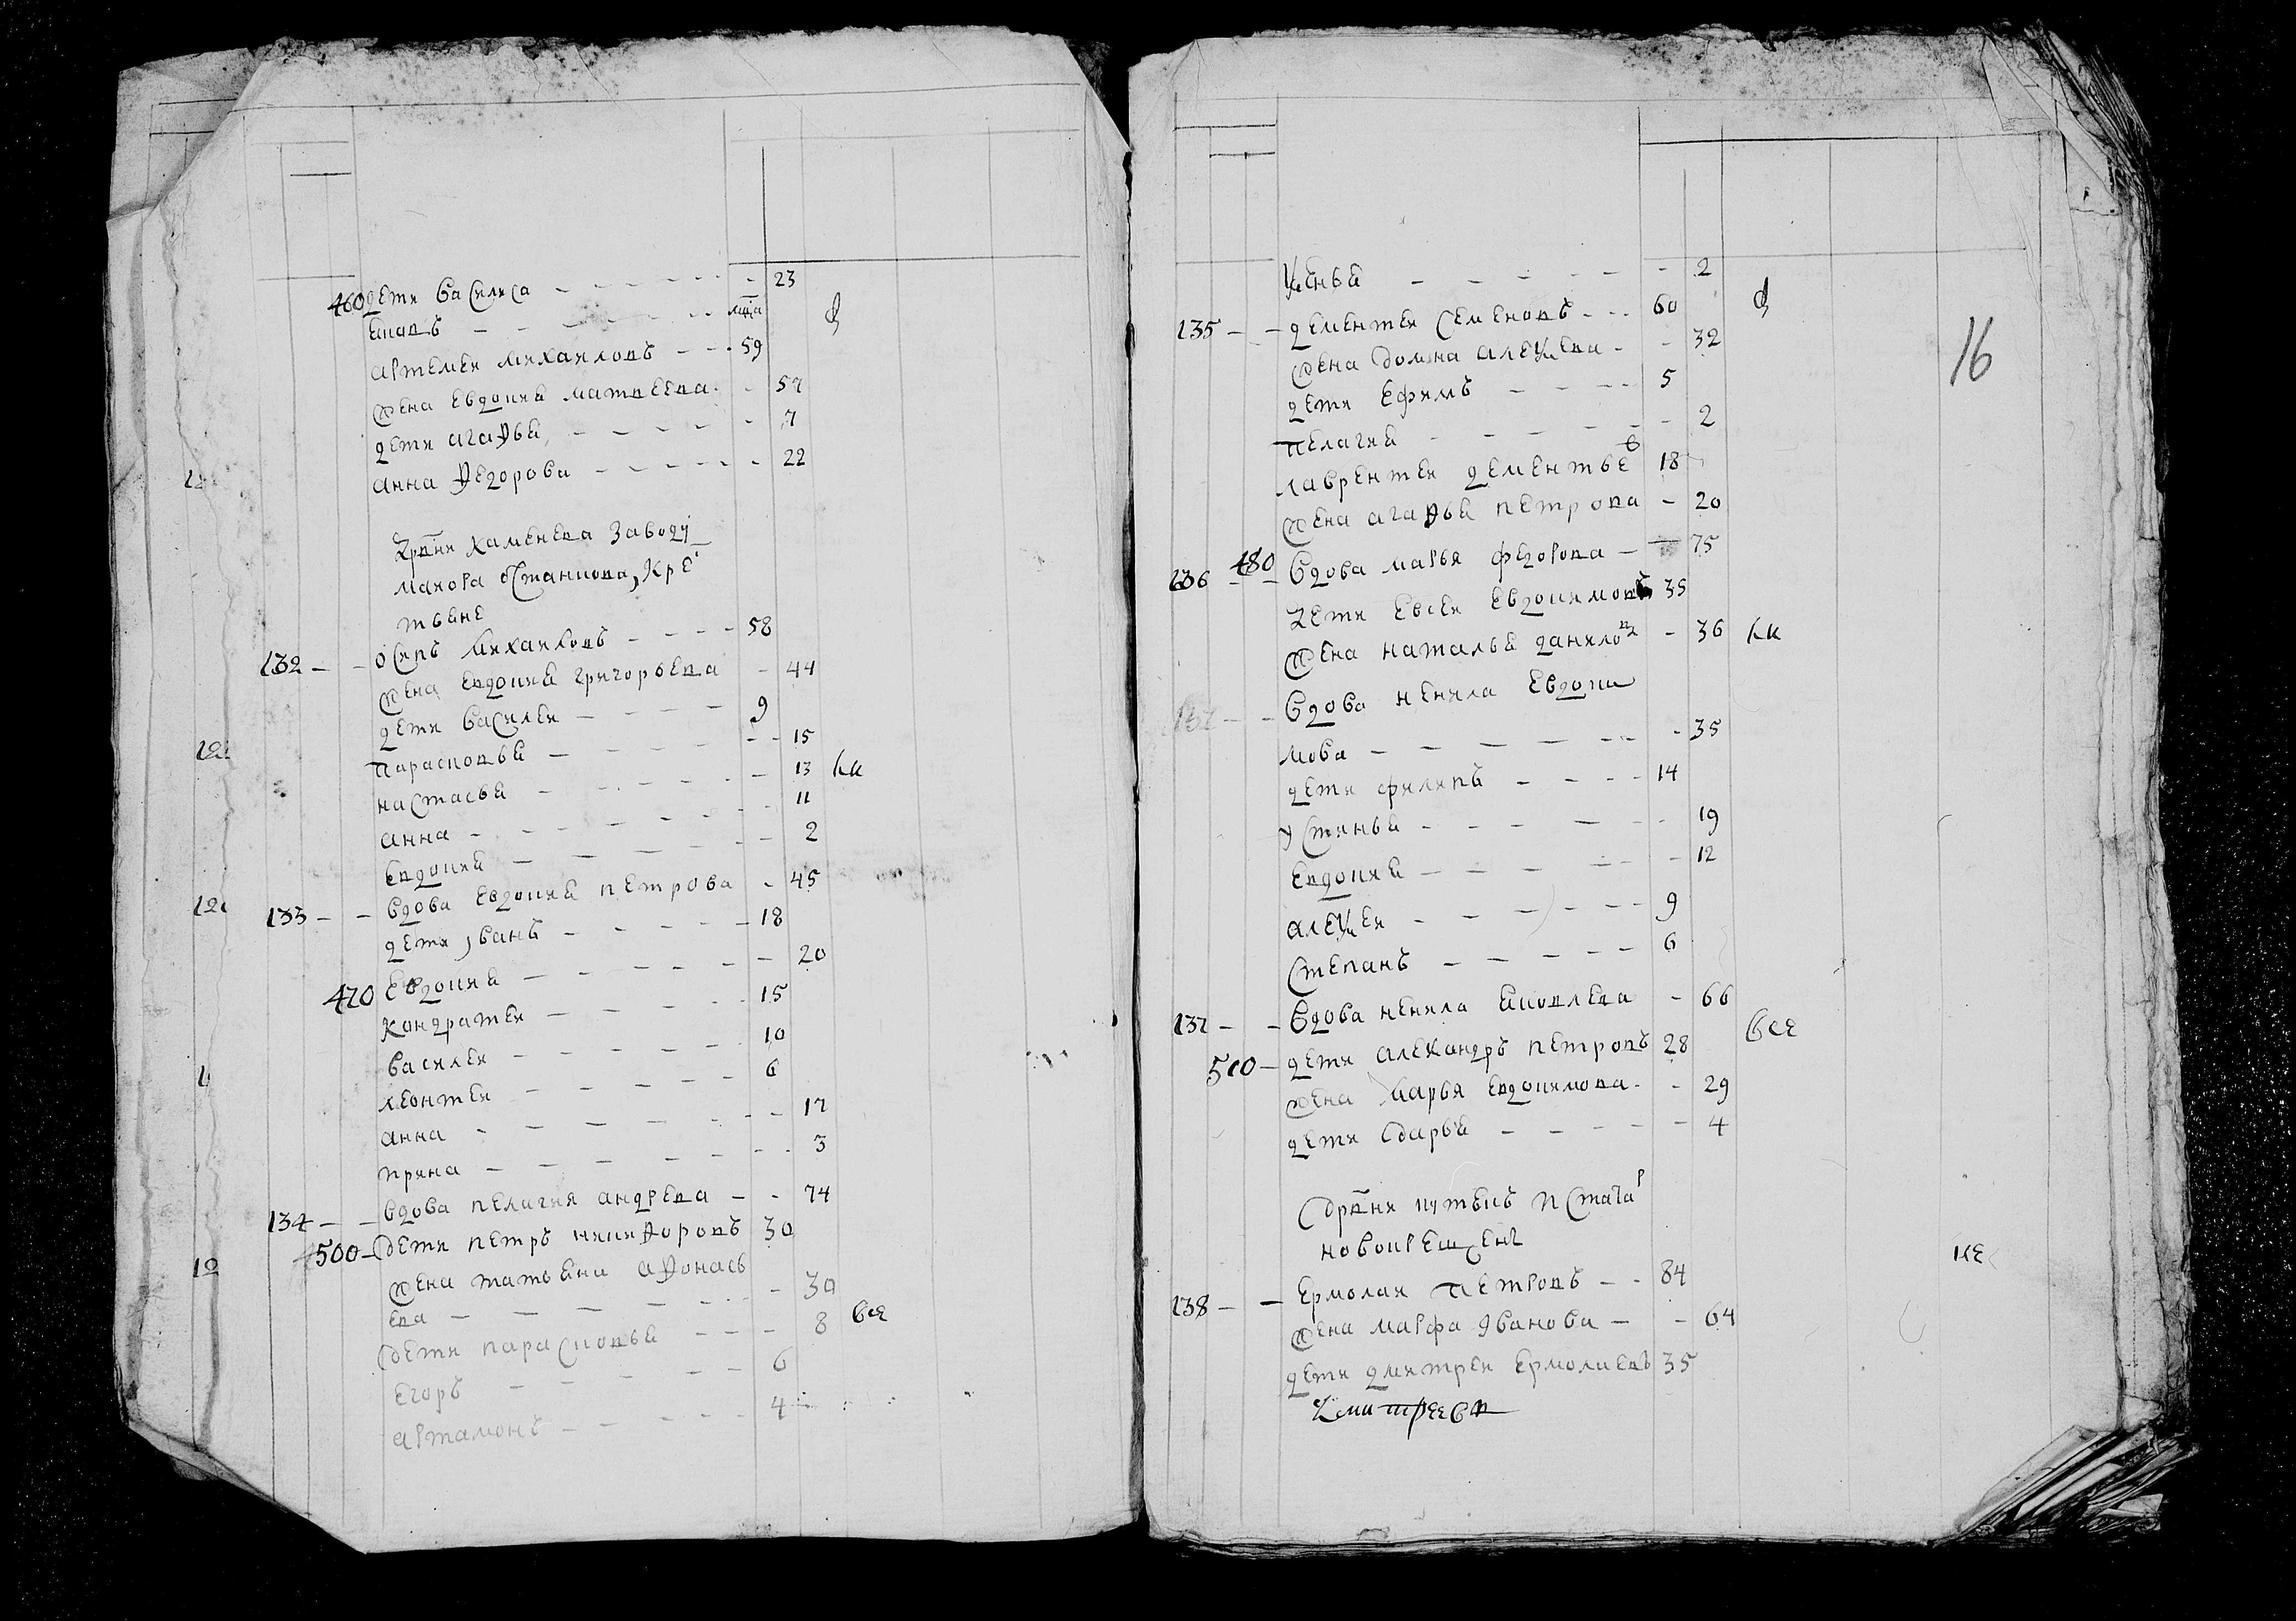 460 дети василиса - - - - - - 23
еиавъ - - - - - -
артемеи михаиловъ - - - 59
жена евдокия матвеева - - 57
дети агафья - - - - - 7
анна федорова - - - - - 22
дрвни каменева заводу
маиора осташкова, кре
тьяне
132 - - осипъ михаиловъ - - - - 58
жена евдокия григорьева - 44
дети василеи - - - - 9
парасковья - - - - - 15
настасья - - - - - 13 ки
анна - - - - - - 11
евдокия - - - - - 2
133 - - вдова евдокия петрова - 45
дети иванъ - - - - - 18
470 евдокия - - - - - - 20
кондратеи - - - - 15
василеи - - - - - 10
леонтеи - - - - - 6
анна - - - - - - - 17
ирина - - - - - - - 3
134 - - вдова пелагия андреева - - 74
500 - дети петръ никифоровъ 30
жена татьяна афонась
ева - - - - - - - 30
дети парасковья - - - 8 все
егоръ - - - - - 6
артамонъ - - - - - 4
ксенья - - - - - - 2
135 - - дементеи семеновъ - - - 60 ф
жена домна алексеева - - 32
дети ефимъ - - - - 5
пелагия - - - - - - 2
16
лаврентеи дементьев 18
жена агафья петрова - 20
136 - 480 - вдова марья федорова - - 75
дети евсеи евдокимовъ 35
жена наталья данилова - 36 ки
137 - - вдова ненила евдоки
мова - - - - - - - 35
дети филипъ - - - - 14
устинья - - - - - - 19
евдокия - - - - - - 12
алексеи - - - - - - 9
степанъ - - - - - 6
137 - - вдова ненила яковлева - 66
510 - дети александръ петровъ 28 все
жена марья евдокимова - - 29
дети дарья - - - - - 4
дрвни кутекъ и стага
новокрещенъ
138 - - ермолаи петровъ - - 84
жена марфа иванова - - 64
дети дмитреи ермолаевъ 35
дмитреева